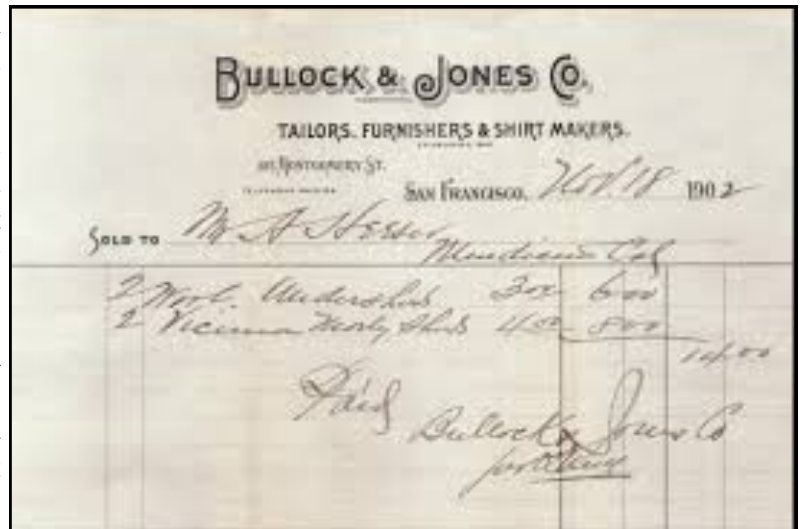 BULLOCK & JONES CO.
TAILORS, FURNISHERS & SHIRT MAKERS.
MONTGOMERY ST.
SAN FRANCISCO, Nov. 18 1902
SOLD TO Mr A
Cal
2 Wool Undershirts 300 600
2 Vicuna Shirts 400 800
1400
Paid
Bullock & Jones Co
per